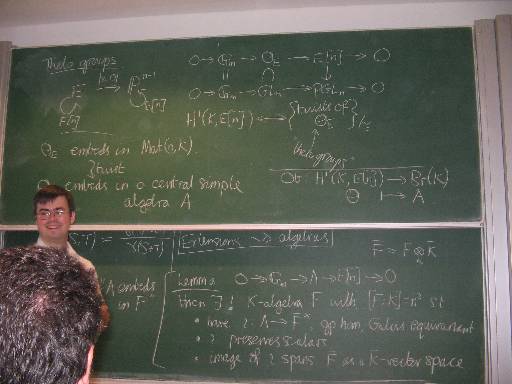 Theta groups
0 → G_m → Θ_E → E[n] → 0
E → P^{n-1}
E[n]
0 → G_m → GL_n → PGL_n → 0
H¹(K, E[n]) ↔ { twists of Θ_E } / ≅
"theta groups"
Θ_E embeds in Mat(n, K).
} twist
Θ embeds in a central simple
algebra A
Ob : H¹(K, E[n]) → Br(K)
Θ ↦ A
Extensions ⇝ algebras
F̄ = F ⊗ K̄
"Λ embeds
in F"
Lemma 0 → G_m → Λ → E[n] → 0
then ∃! K-algebra F with [F:K]=n² st
• have ι: Λ → F̄^×, gp hom, Galois equivariant
• ι preserves scalars
• image of ι spans F̄ as a K̄-vector space